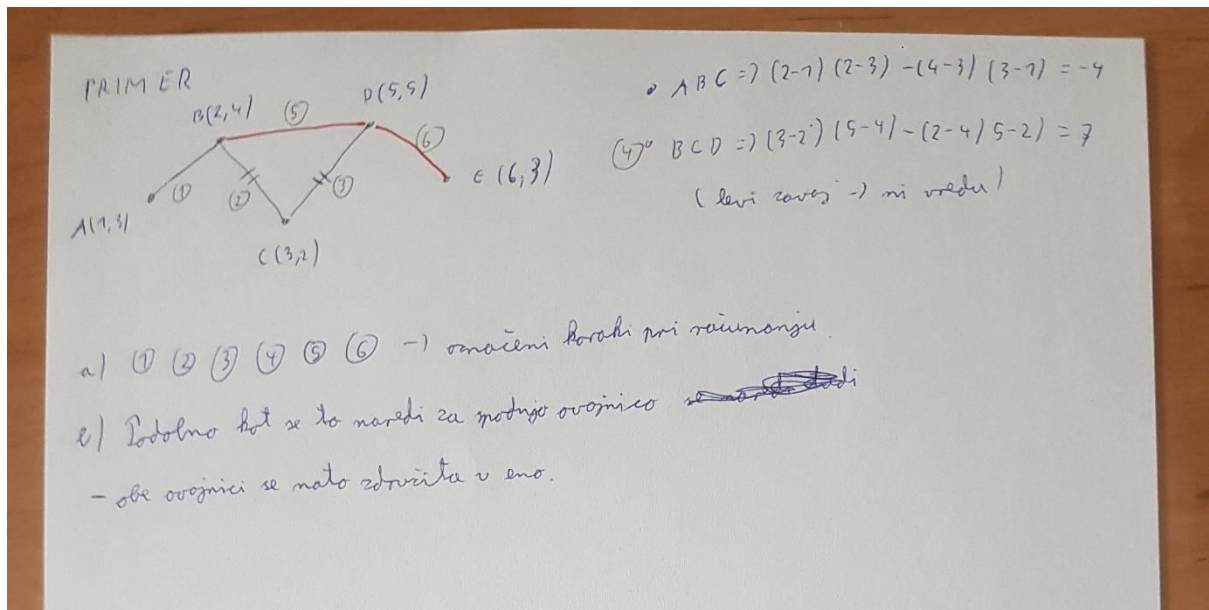 PRIMER
B(2,4) ⑤ D(5,5)
⑥
① ② ③ E(6,3)
A(1,3)
C(3,2)
• ABC => (2-1) (2-3) -(4-3) (3-1) = -4
④• BCD => (3-2) (5-4) -(2-4) 5-2) = 7
(levi zavoj -> ni vredu)
a) ① ② ③ ④ ⑤ ⑥ -> označeni koraki pri računanju.
e) Podobno kot se to naredi za spodnjo ovojnico
- obe ovojnici se nato združita v eno.